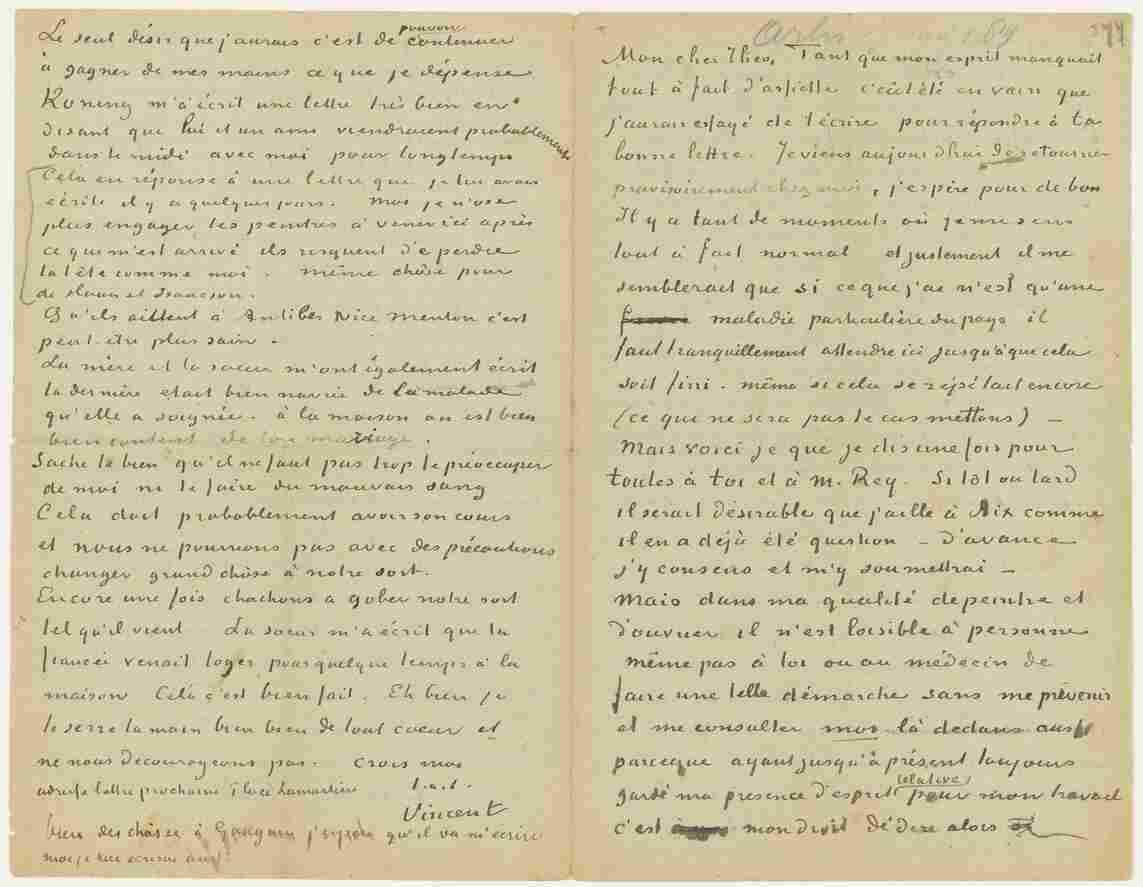 Le seul désir que j'aurais c'est de pouvoir continuer
à gagner de mes mains ce que je dépense
Koning m'a écrit une lettre très bien en
disant que lui et un ami viendraient probablement
dans le midi avec moi pour longtemps
Cela en réponse à une lettre que je lui avais
écrite il y a quelques jours. Moi je n'ose
plus engager les peintres à venir ici après
ce qui m'est arrivé ils risquent de perdre
la tête comme moi. Même chôse pour
de Haan et Isaäcson.
Qu'ils aillent à Antibes Nice Menton c'est
peut-être plus sain.
La mère et la soeur m'ont également écrit
la dernière etait bien navrée de la malade
qu'elle a soignée. à la maison on est bien
bien content de ton mariage.
Sache le bien qu'il ne faut pas trop te préoccuper
de moi ni te faire du mauvais sang
Cela doit probablement avoir son cours
et nous ne pourrions pas avec des précautions
changer grand chôse à notre sort.
Encore une fois chachons à gober notre sort
tel qu'il vient La soeur m'a écrit que ta
fiancée venait loger pour quelque temps à la
maison Cela c'est bien fait. Eh bien je
te serre la main bien bien de tout coeur et
ne nous décourageons pas. Crois moi
t.à.t.
adresse lettre prochaine Place Lamartine
Vincent
bien des chôses à Gauguin j'espère qu'il va m'écrire
moi je lui écrirai aussi
Arles 89
Mon cher Theo, Tant que mon esprit manquait
tout à fait d'assiette c'eut été en vain que
j'aurais essayé de t'écrire pour répondre à ta
bonne lettre. Je viens aujourdhui de retourner
provisoirement chez moi, j'espère pour de bon
Il y a tant de moments où je me sens
tout à fait normal et justement il me
semblerait que si ce que j'ai n'est qu'une
maladie particulière du pays il
faut tranquillement attendre ici jusqu'à que cela
soit fini. même si cela se répétait encore
(ce qui ne sera pas le cas mettons) –
Mais voici je que je dis une fois pour
toutes à toi et à M. Rey. Si tôt ou tard
il serait désirable que j'aille à Aix comme
il en a déjà été question – D'avance
j'y consens et m'y soumettrai –
Mais dans ma qualité de peintre et
d'ouvrier il n'est loisible à personne
même pas à toi ou au médecin de
faire une telle démarche sans me prévenir
et me consulter moi là dedans aussi
parceque ayant jusqu'à présent toujours
gardé ma presence d'esprit relative pour mon travail
c'est mon droit de dire alors